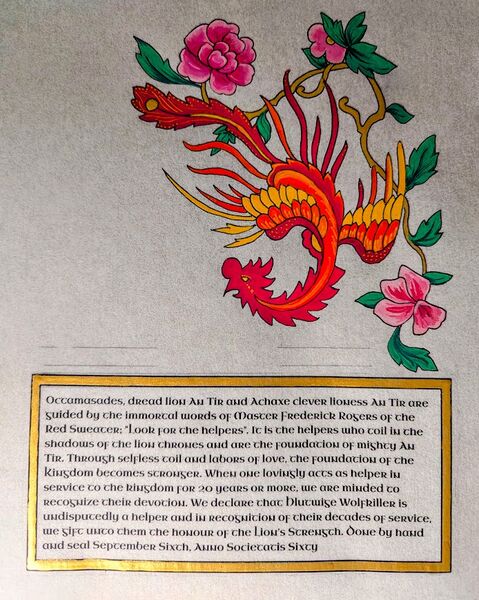 Octamasades, dread lion An Tir and Achaxe clever lioness An Tir are
guided by the immortal words of Master Frederick Rogers of the
Red Sweater; "Look for the helpers". It is the helpers who toil in the
shadows of the lion thrones and are the foundation of mighty An
Tir. Through selfless toil and labors of love, the foundation of the
kingdom becomes stronger. When one lovingly acts as helper in
service to the kingdom for 20 years or more, we are minded to
recognize their devotion. We declare that Hlutwige Wolfkiller is
undisputedly a helper and in recognition of their decades of service,
we gift unto them the honour of the Lion's Strength. Done by hand
and seal September Sixth, Anno Societatis Sixty